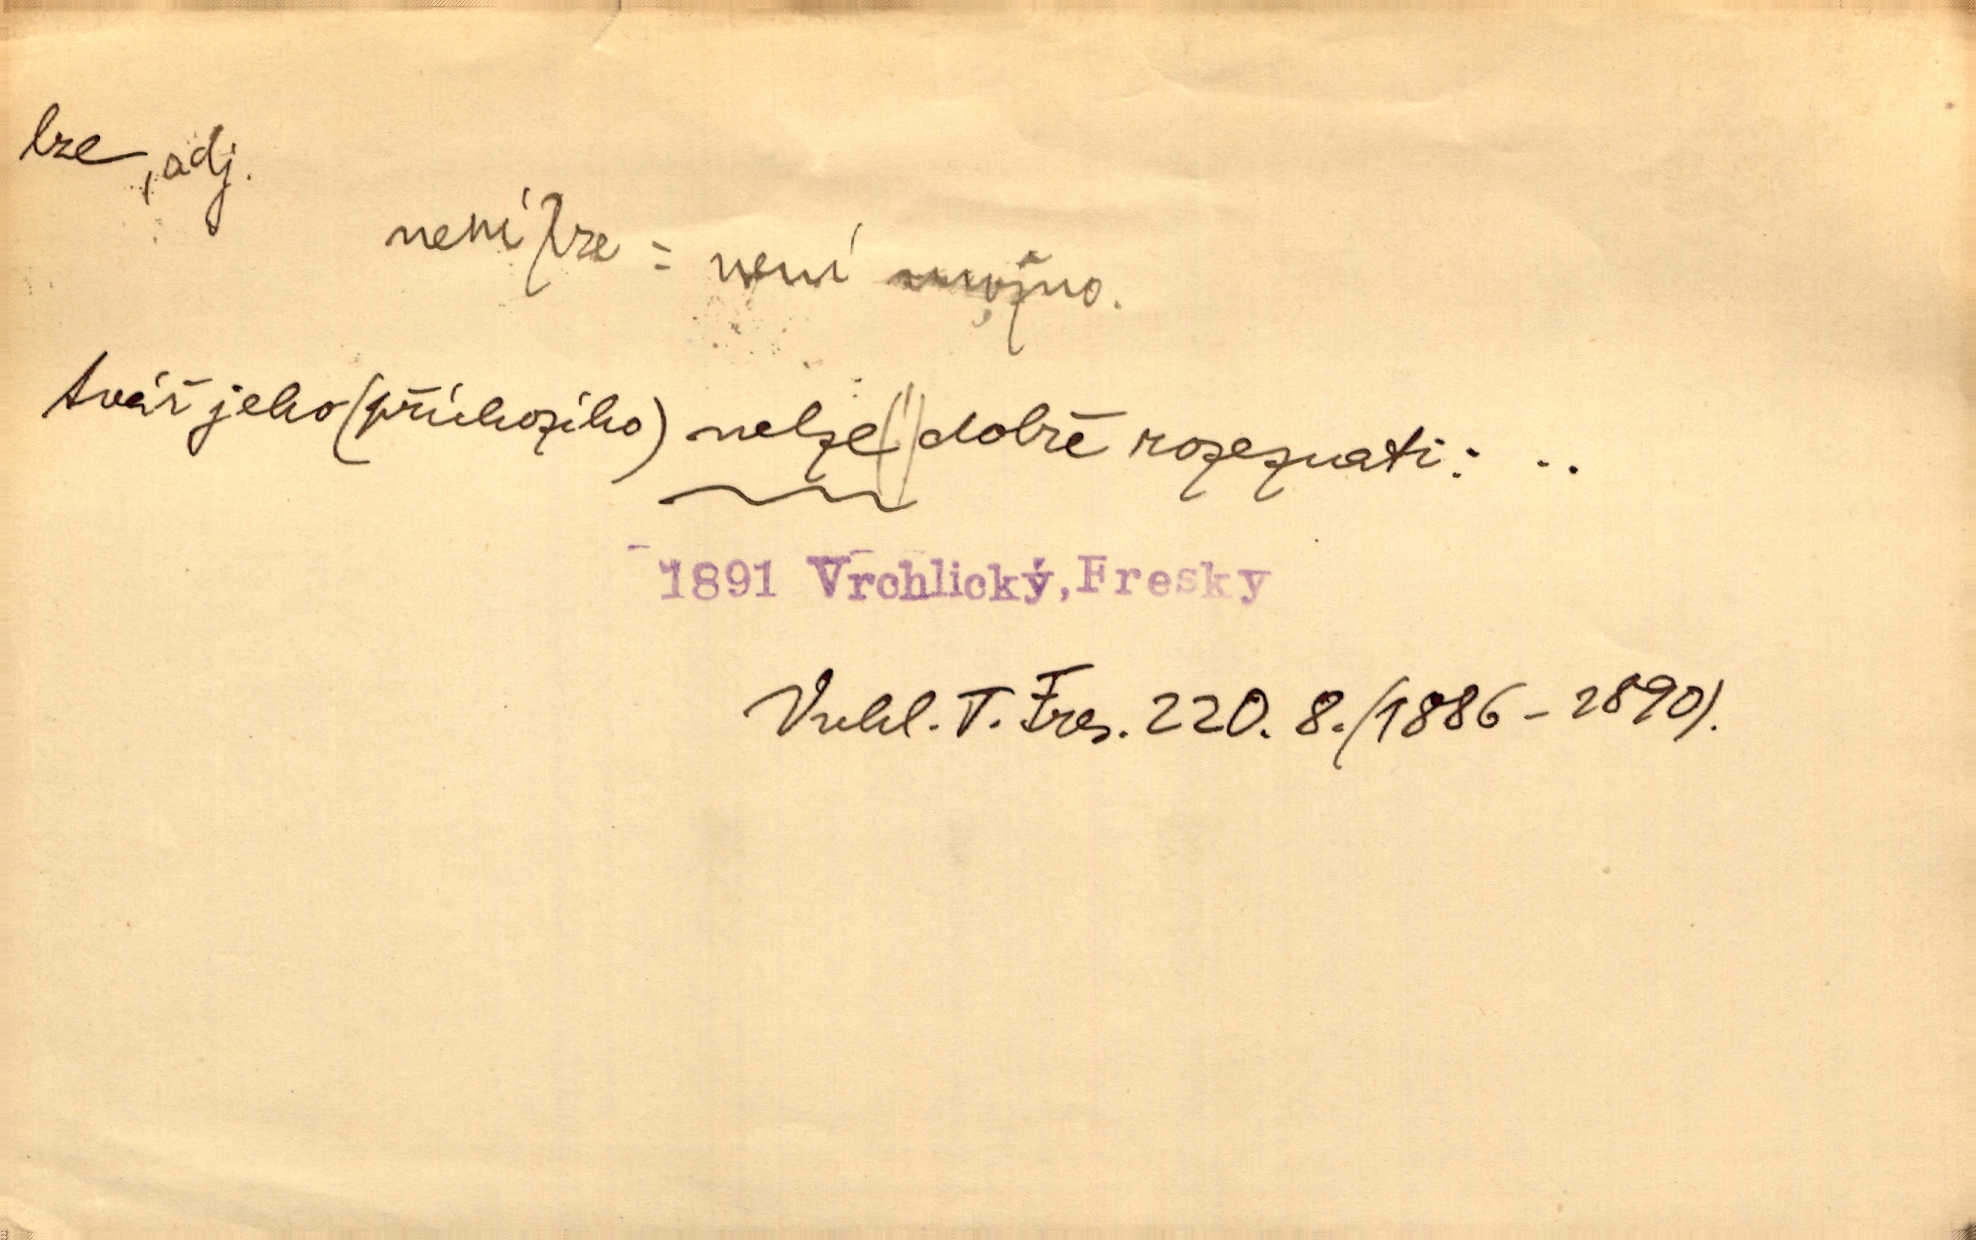 lze, adj.
není lze = není možno.
tvář jeho (příchozího) nelze (!) dobře rozeznati: ..
1891 Vrchlický, Fresky
Vrchl. T. Fres. 220. 8. (1886 - 1890).